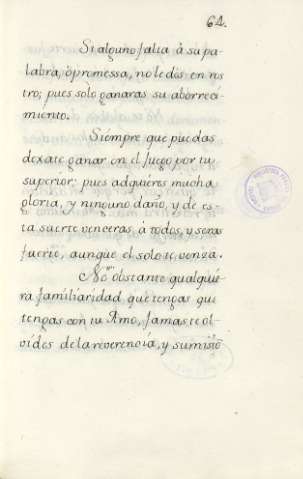 64.
Si alguno falta à su pa-
labra, ò promessa, no le dès en ros
tro; pues solo ganaras su aborreci-
miento.
Siempre que puedas
dexate ganar en el juego por tu
superior; pues adquieres mucha
gloria, y ninguno daño, y de es-
ta suerte venceras à todos, y seras
fuerte, aunque el solo te venza.
No obstante qualquie-
ra familiaridad que tengas que
tengas con tu Amo, jamas te ol-
vides de la reverencia, y sumisiō